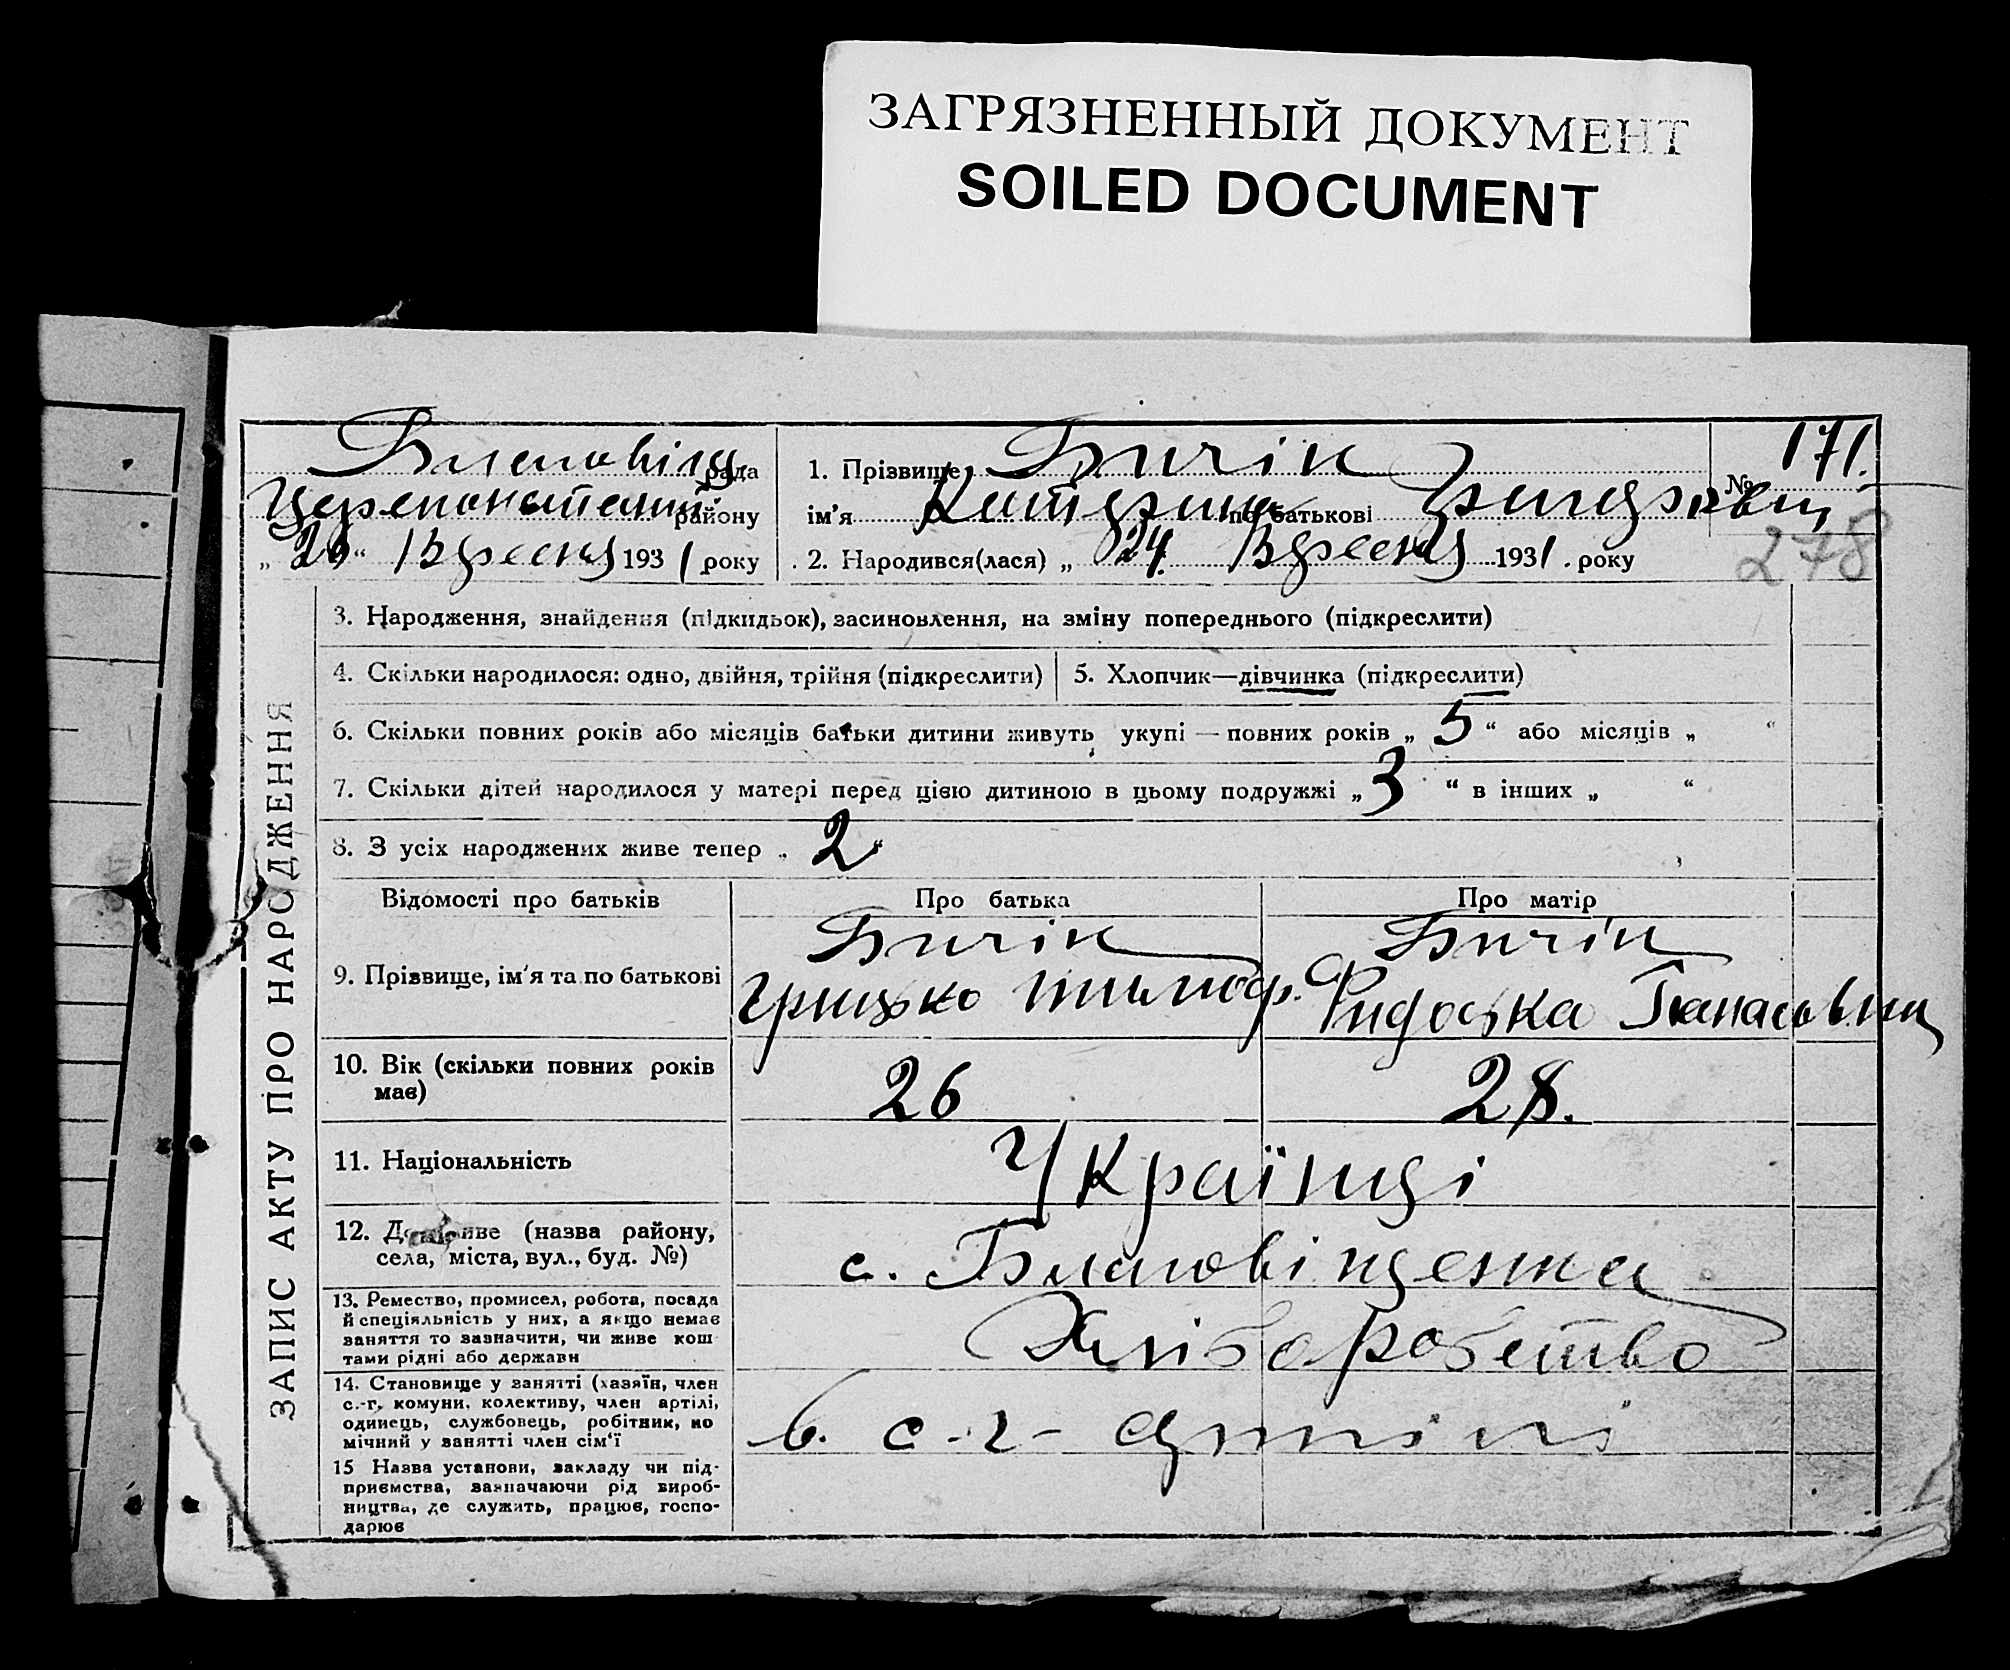 ЗАГРЯЗНЕННЫЙ ДОКУМЕНТ
SOILED DOCUMENT
рада
району
„ 26 “ Вересня 1931 року
1. Прізвище Бичік
ім'я Катерина по батькові
2. Народився(лася) „ 24. Вересня 1931. року
№ 171.
278
ЗАПИС АКТУ ПРО НАРОДЖЕННЯ
3. Народження, знайдення (підкидьок), засиновлення, на зміну попереднього (підкреслити)
4. Скільки народилося: одно, двійня, трійня (підкреслити)
5. Хлопчик—дівчинка (підкреслити)
6. Скільки повних років або місяців батьки дитини живуть укупі — повних років „ 5 “ або місяців „ “
7. Скільки дітей народилося у матері перед цією дитиною в цьому подружжі „ 3 “ в інших „ “
8. З усіх народжених живе тепер „ 2 “
Відомості про батьків
Про батька
Про матір
9. Прізвище, ім'я та по батькові
Бичік
Грицько Тимоф.
Бичік
Фидоська Панасовна
10. Вік (скільки повних років
має)
26
28.
11. Національність
Українці
12. (назва району,
села, міста, вул., буд. №)
с. Благовіщенка
13. Ремество, промисел, робота, посада
й спеціяльність у них, а якщо немає
заняття то зазначити, чи живе кош
тами рідні або держави
Хліборобство
14. Становище у занятті (хазяїн, член
с.-г. комуни, колективу, член артілі,
одинець, службовець, робітник, по
мічний у занятті член сім'ї
в. с-г- артілі
15 Назва установи, закладу чи під-
приємства, зазначаючи рід вироб-
ництва, де служить, працює, госпо-
дарює